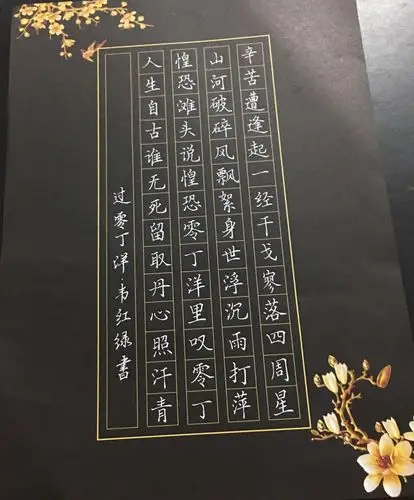 辛苦遭逢起一经干戈寥落四周星
山河破碎风飘絮身世浮沉雨打萍
惶恐滩头说惶恐零丁洋里叹零丁
人生自古谁无死留取丹心照汗青
过零丁洋·韦红绿书